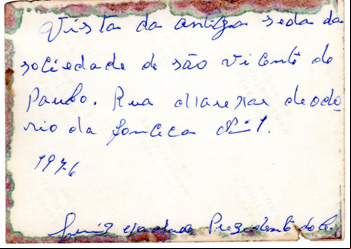 Vista da antiga seda da
sociedade de são Vicente de
Paulo. Rua Marexar deodo
rio da fonceca Nº 1.
1976
Presidente do